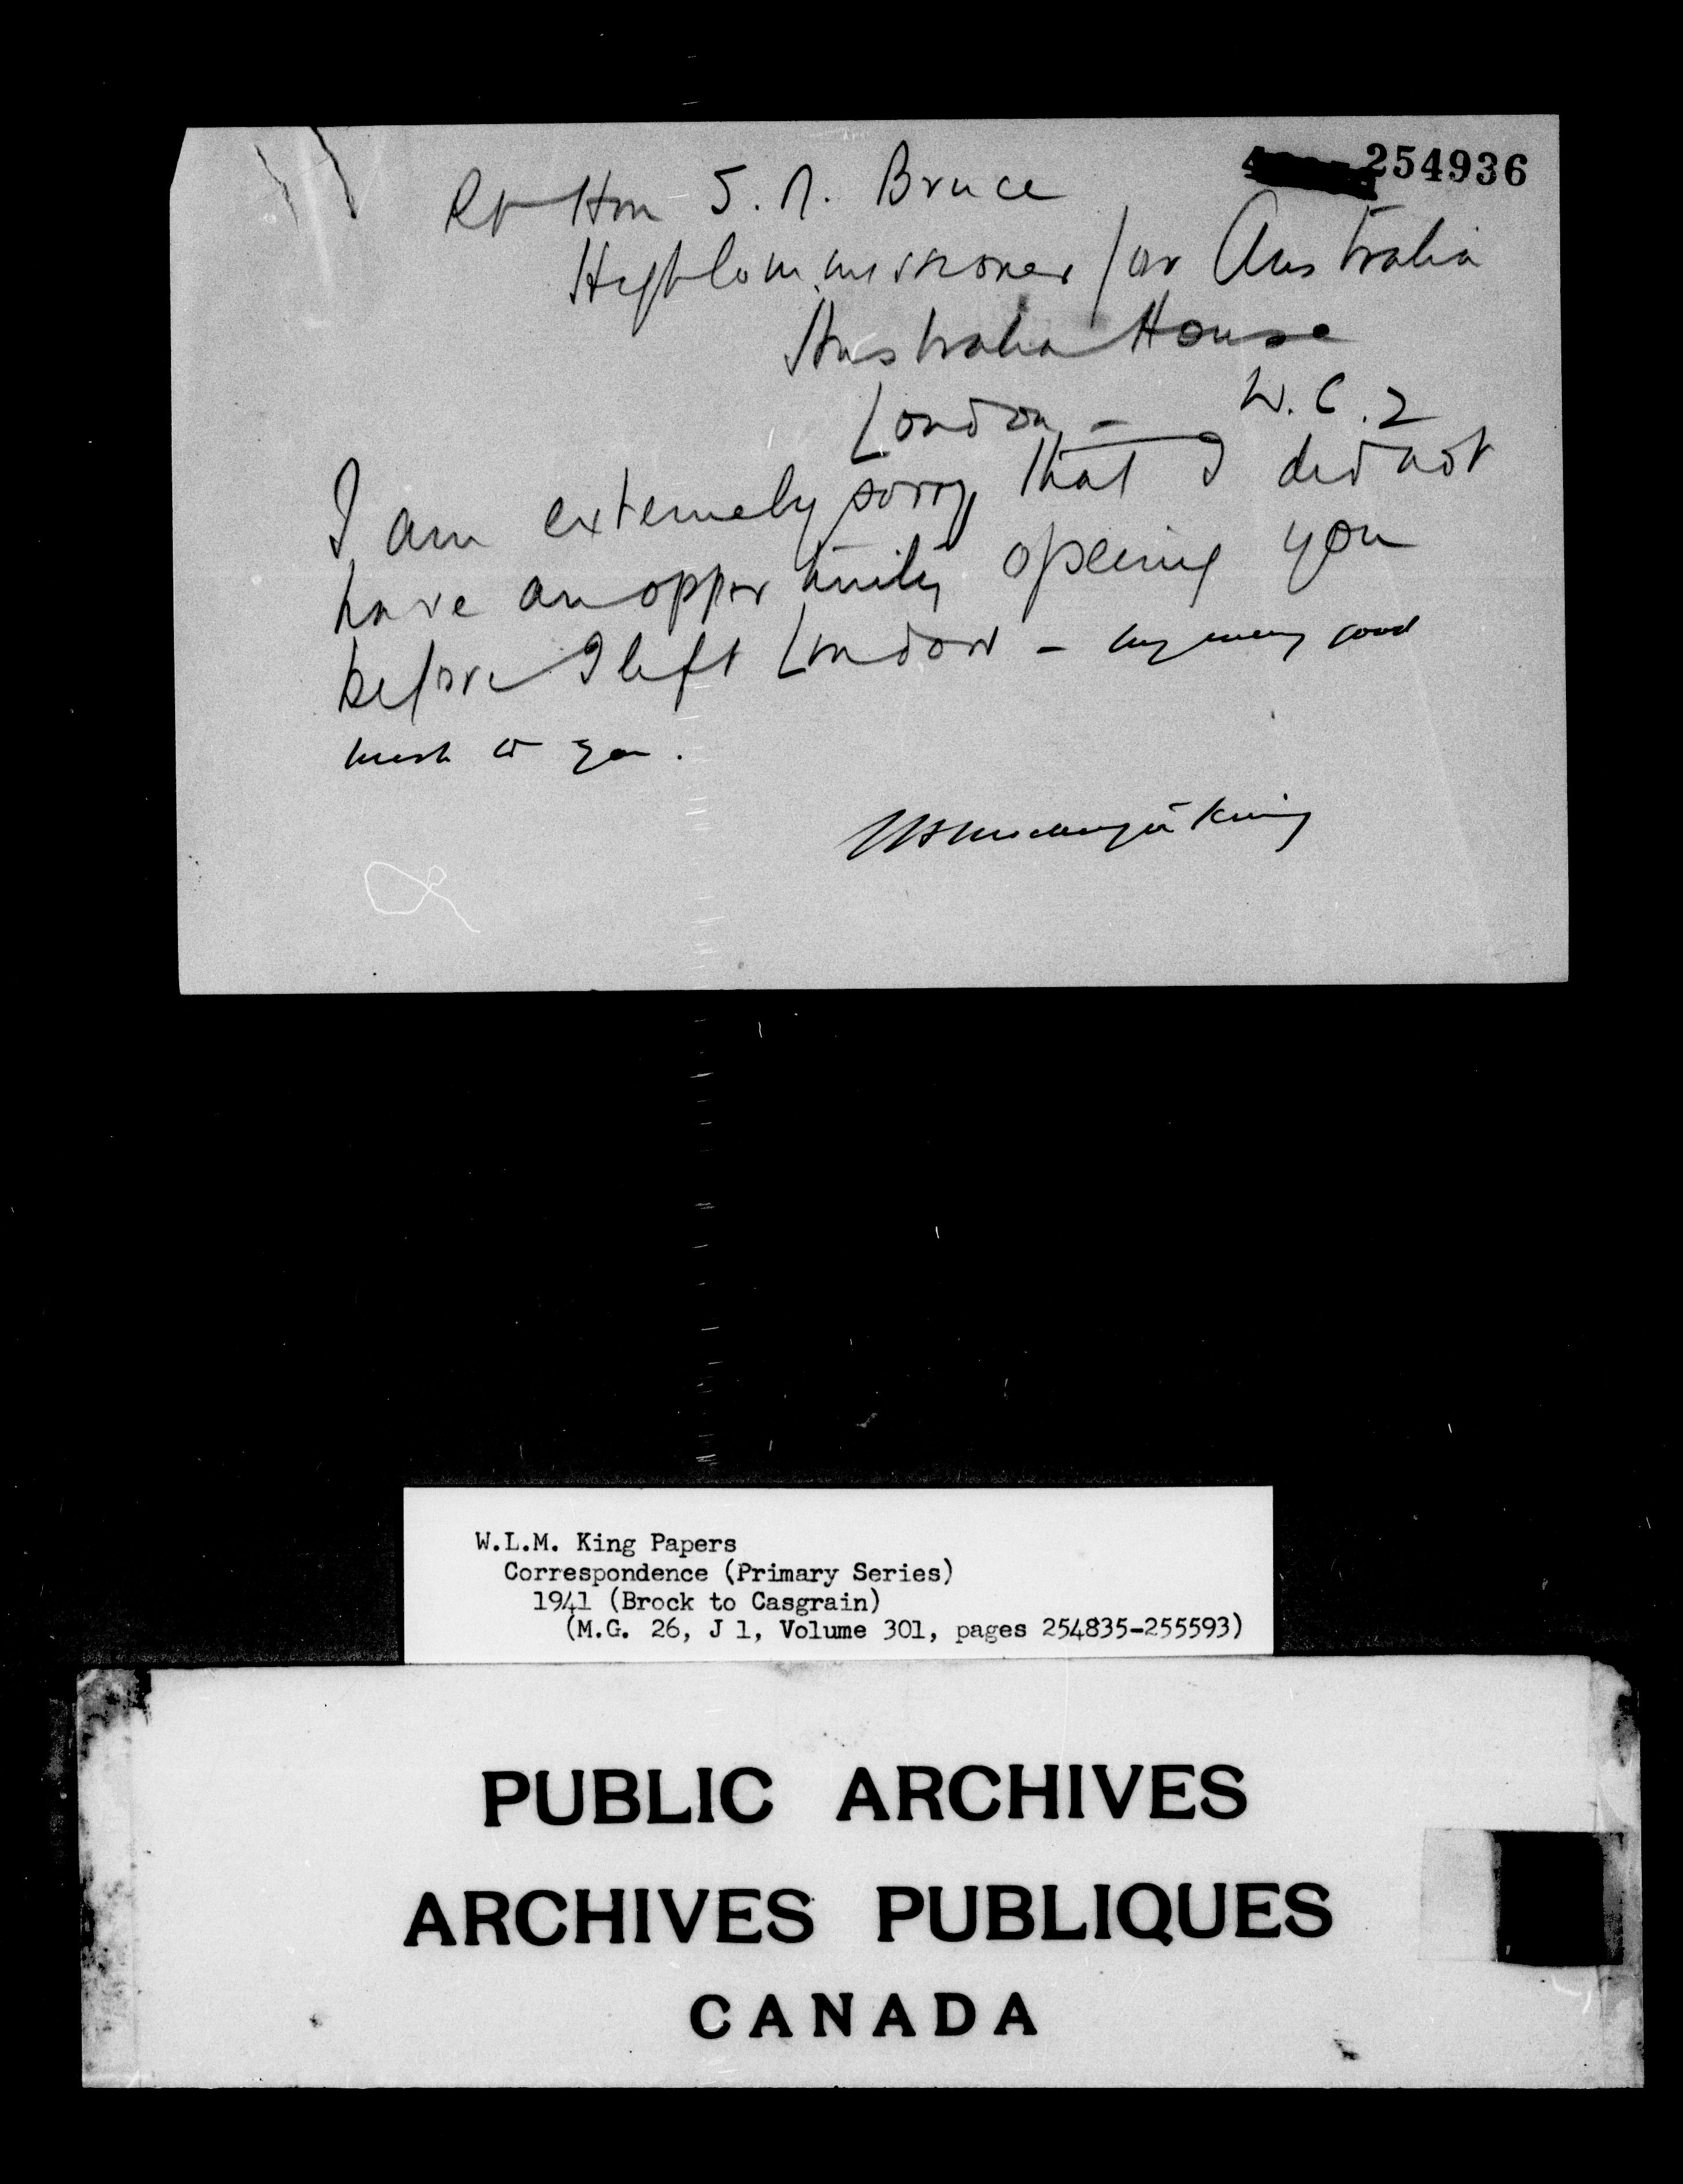 254936
Rt Hon S. M. Bruce
High Commissioner for Australia
Australia House
London - W.C.2
I am extemely sorry that I did not
have an opportunity of seeing you
before I left London - my every good
wish to you.
W L Mackenzie King
W.L.M. King Papers
Correspondence (Primary Series)
1941 (Brock to Casgrain)
(M.G. 26, J 1, Volume 301, pages 254835-255593)
PUBLIC ARCHIVES
ARCHIVES PUBLIQUES
CANADA